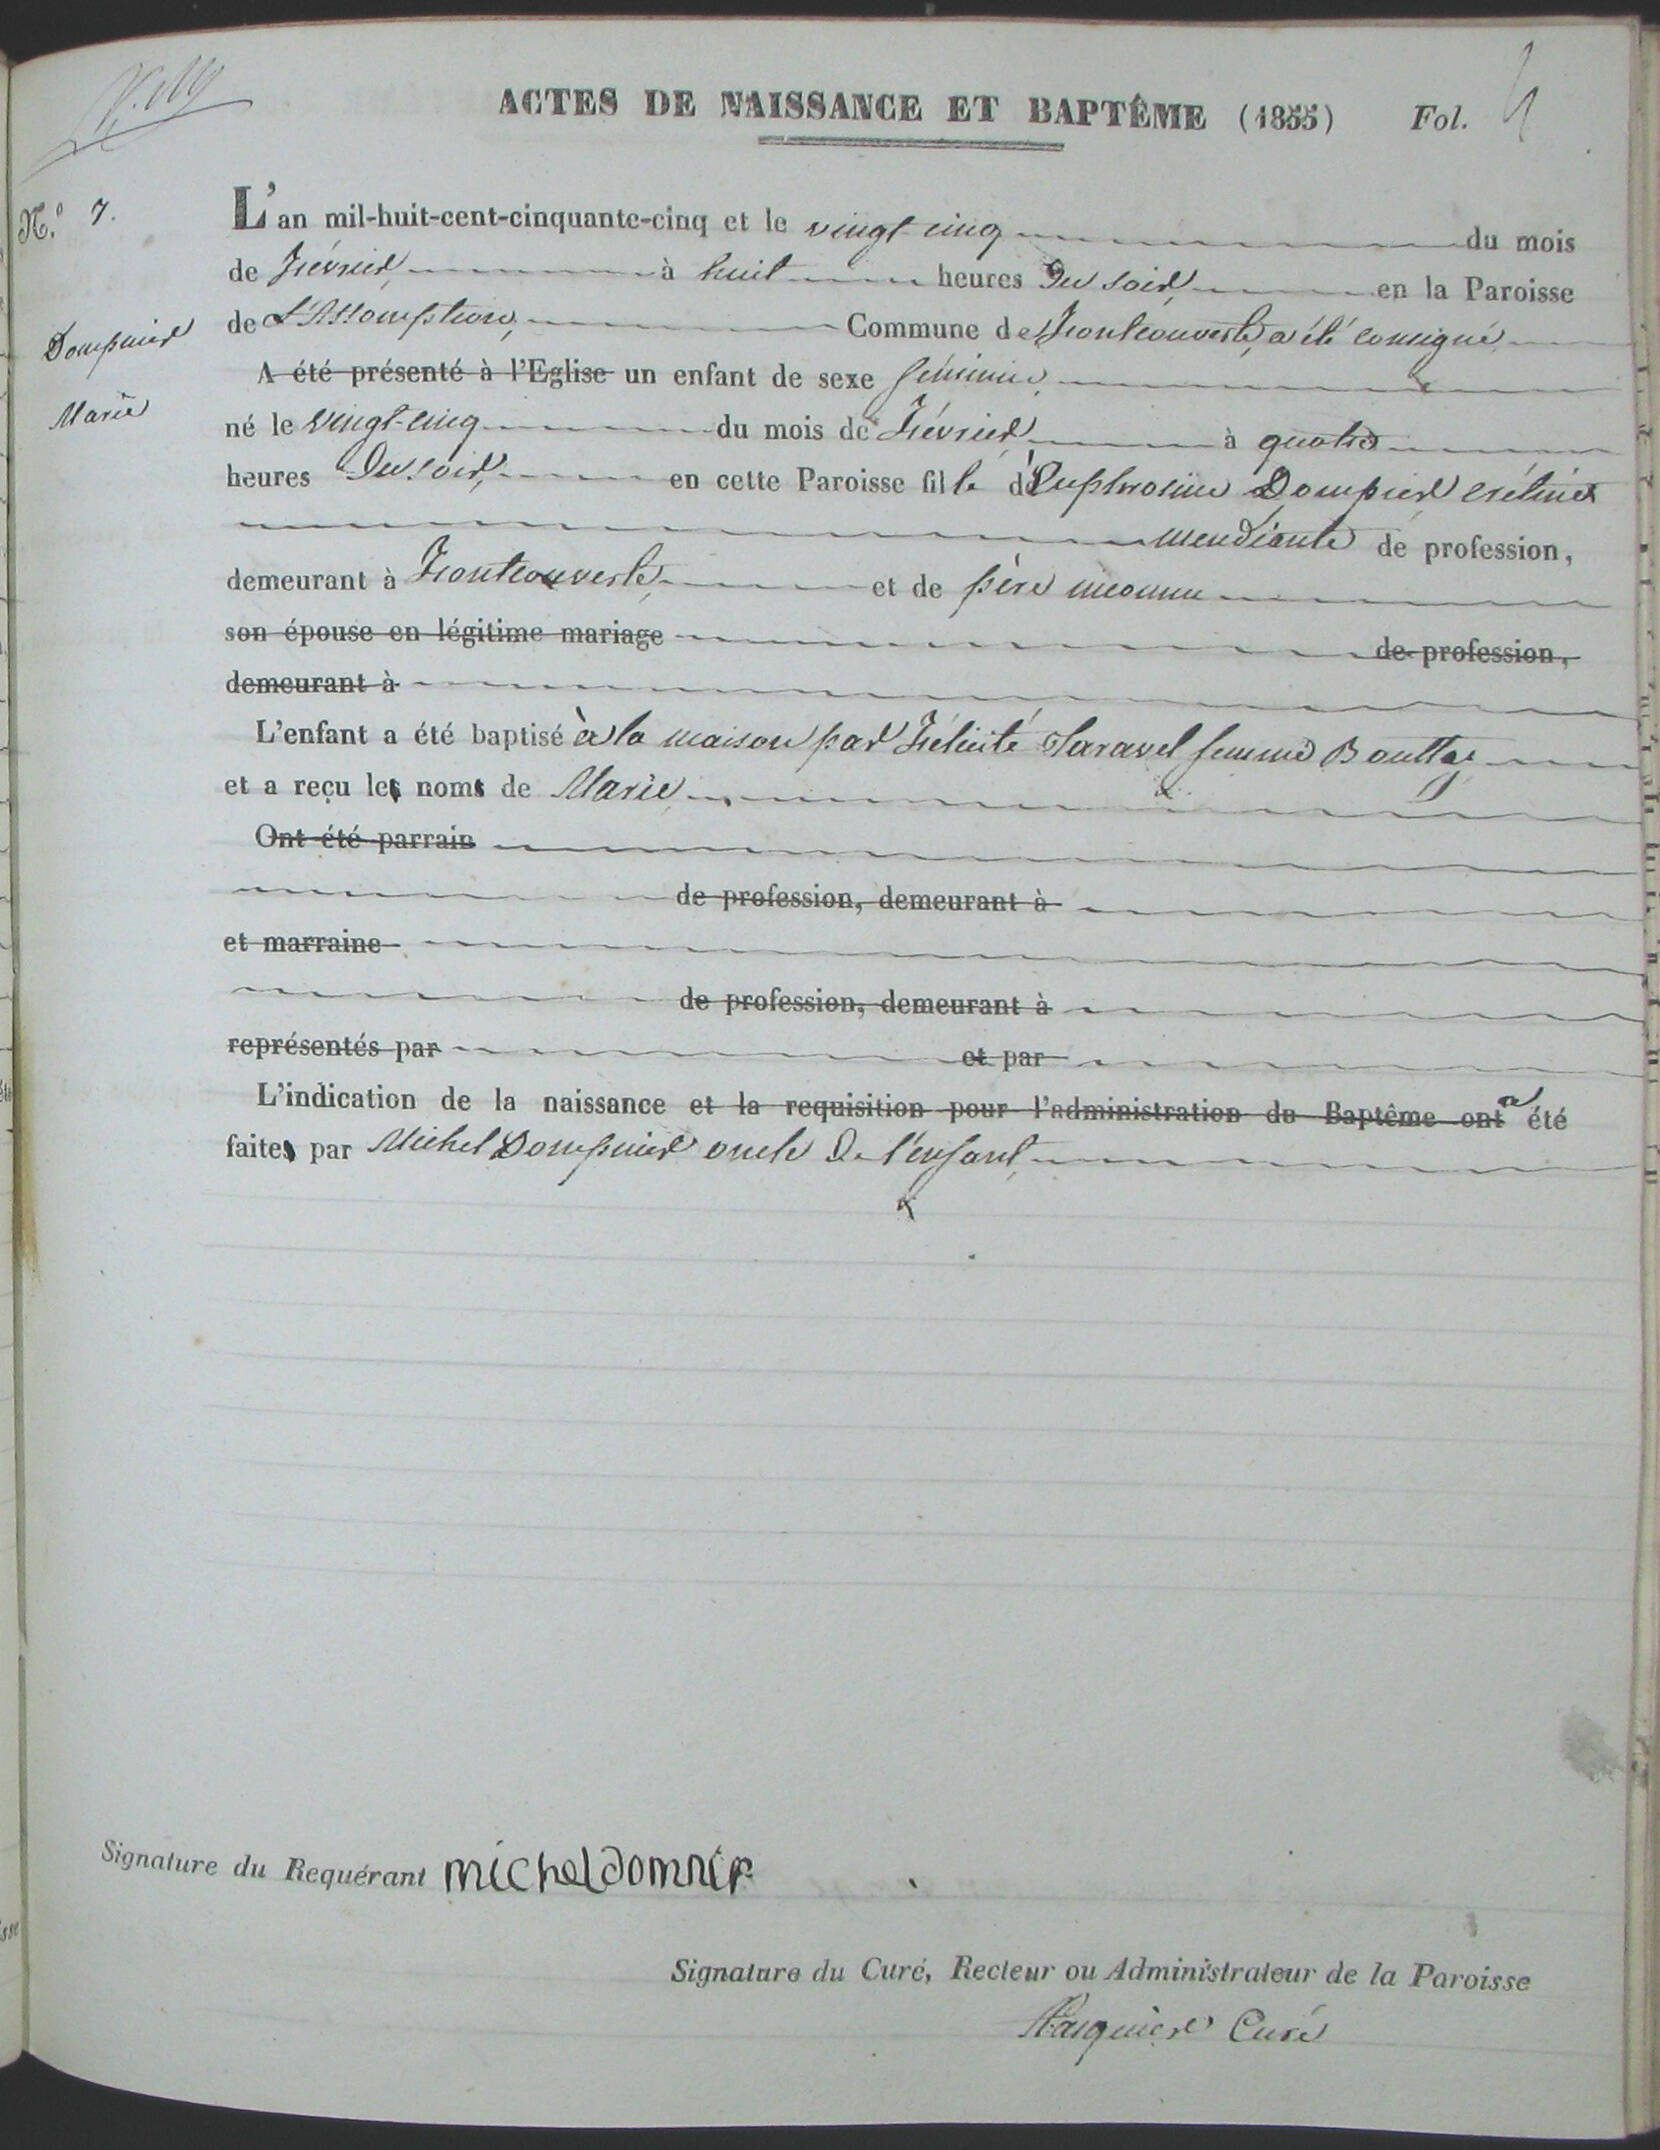 ACTES DE NAISSANCE ET BAPTÊME (1855) Fol. 4
N.º 7.
Dompnier
Marie
L'an mil-huit-cent-cinquante-cinq et le vingt cinq du mois
de Février à huit heures Du soir, en la Paroisse
de L'Assomption, Commune de Montcouverte, a été consigné
A été présenté à l'Eglise un enfant de sexe féminin
né le vingt-cinq du mois de Février à quatre
heures Du soir, en cette Paroisse fille d'Euphrosine Dompnier crétine
mendiante de profession,
demeurant à Fontcouverte, et de père inconnu
son épouse en légitime mariage de profession,
demeurant à
L'enfant a été baptisé à la maison par Félicité Taravel femme Bouttaz
et a reçu les noms de Marie
Ont été parrain
de profession, demeurant à
et marraine
de profession, demeurant à
représentés par et par
L'indication de la naissance et la requisition pour l'administration du Baptême ont a été
faites par Michel Dompnier oncle De l'enfant
Signature du Requérant micheldomnier
Signature du Curé, Recteur ou Administrateur de la Paroisse
Curé